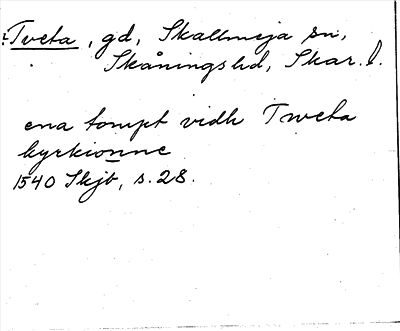 Tveta, gd, Skallmeja sn,
Skånings hd, Skar. l.
ena tompt vidh Tweta
kyrkionne
1540 Skjb, s. 28.